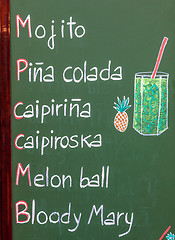 Mojito
Piña colada
Caipiriña
Caipiroska
Melon ball
Bloody Mary